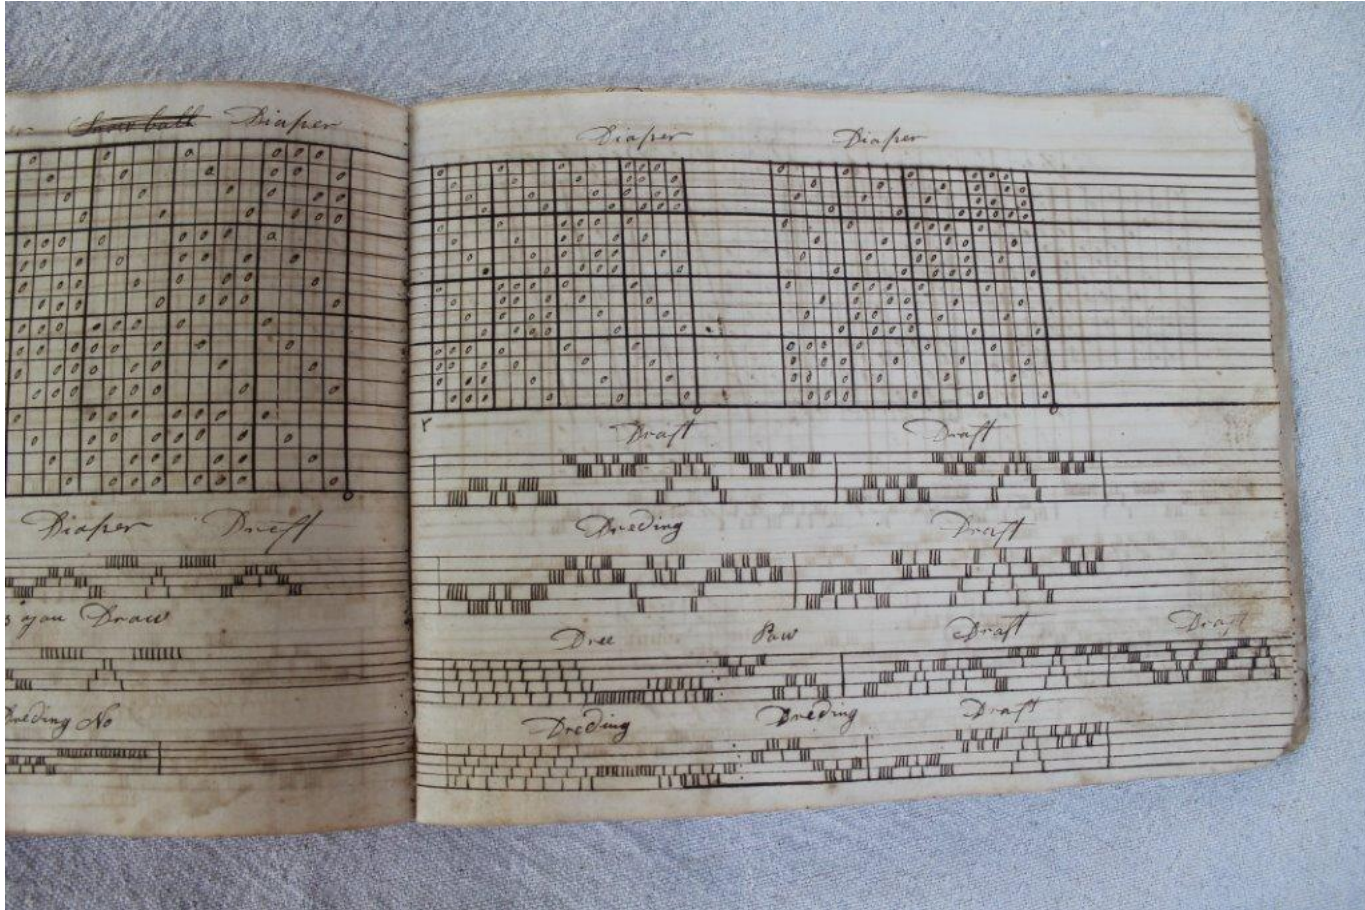 Snow ball Diaper
Diaper Draft
s you Draw
Dreding No
Diaper Diaper
Draft Draft
Dreding Draft
Draft Draft
Dreding Dreding Draft